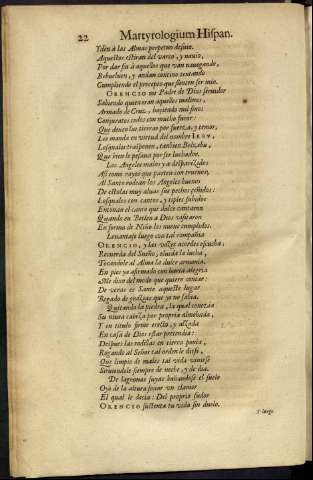 22 Martyrologium Hispan.
Y den à las Almas perpetuo desvio.
Aquellos estiran del varco, y navio,
Por dar fin à aquellos que van navegando,
Rebuelven, y andan contino tentando
Cumpliendo el precepto que fueron ser mio.
ORENCIO mi Padre de Dios servidor
Sabiendo quien eran aquellos malinos,
Armado de Cruz, haziendo mil sinos
Conjuratos todos con mucho furor:
Que dexen las tierras por fuerza, y temor,
Los manda en virtud del nombre IESV,
Losquales traspenen, tambien Belzebu,
Que tiene le pesava por ser luchador.
Los Angeles malos ya desparezides
Assi como rayos que parten con truenos,
Al Santo rodean los Angeles buenos
De estolas muy aluas sus pechos ceñidos:
Losquales con cantos, y tiples subidos
Entonan el canto que dulce cantaron
Quando en Betlen a Dios visitaron
En forma de Niño los nueve cumplidos.
Levantase luego con tal compañia
ORENCIO, y las vozes acordes escucha;
Recuerda del Sueño, olvida la lucha,
Tocandole al Alma la dulce armonia.
En pies ya afirmado con harta alegria
Me dizen del modo que quiero contar:
De veras es Santo aqueste lugar
Regado de gracias que yo no sabia.
Quitando la piedra, la qual conozia
Su mura cabeza por propria almohada,
Y en titulo firme erecta, y alzada
En casa de Dios estar pretendia:
Despues las rodillas en tierra ponia,
Rogando al Señor tal orden le diesse,
Que limpio de males tal vida viviesse
Sirviendole siempre de noche, y de dia.
De lagrimas suyas bañandose el suelo
Oyò de la altura sonar un clamor
El qual le dezia: Del proprio sudor
ORENCIO sustenta tu vida sin duelo.
Y luego